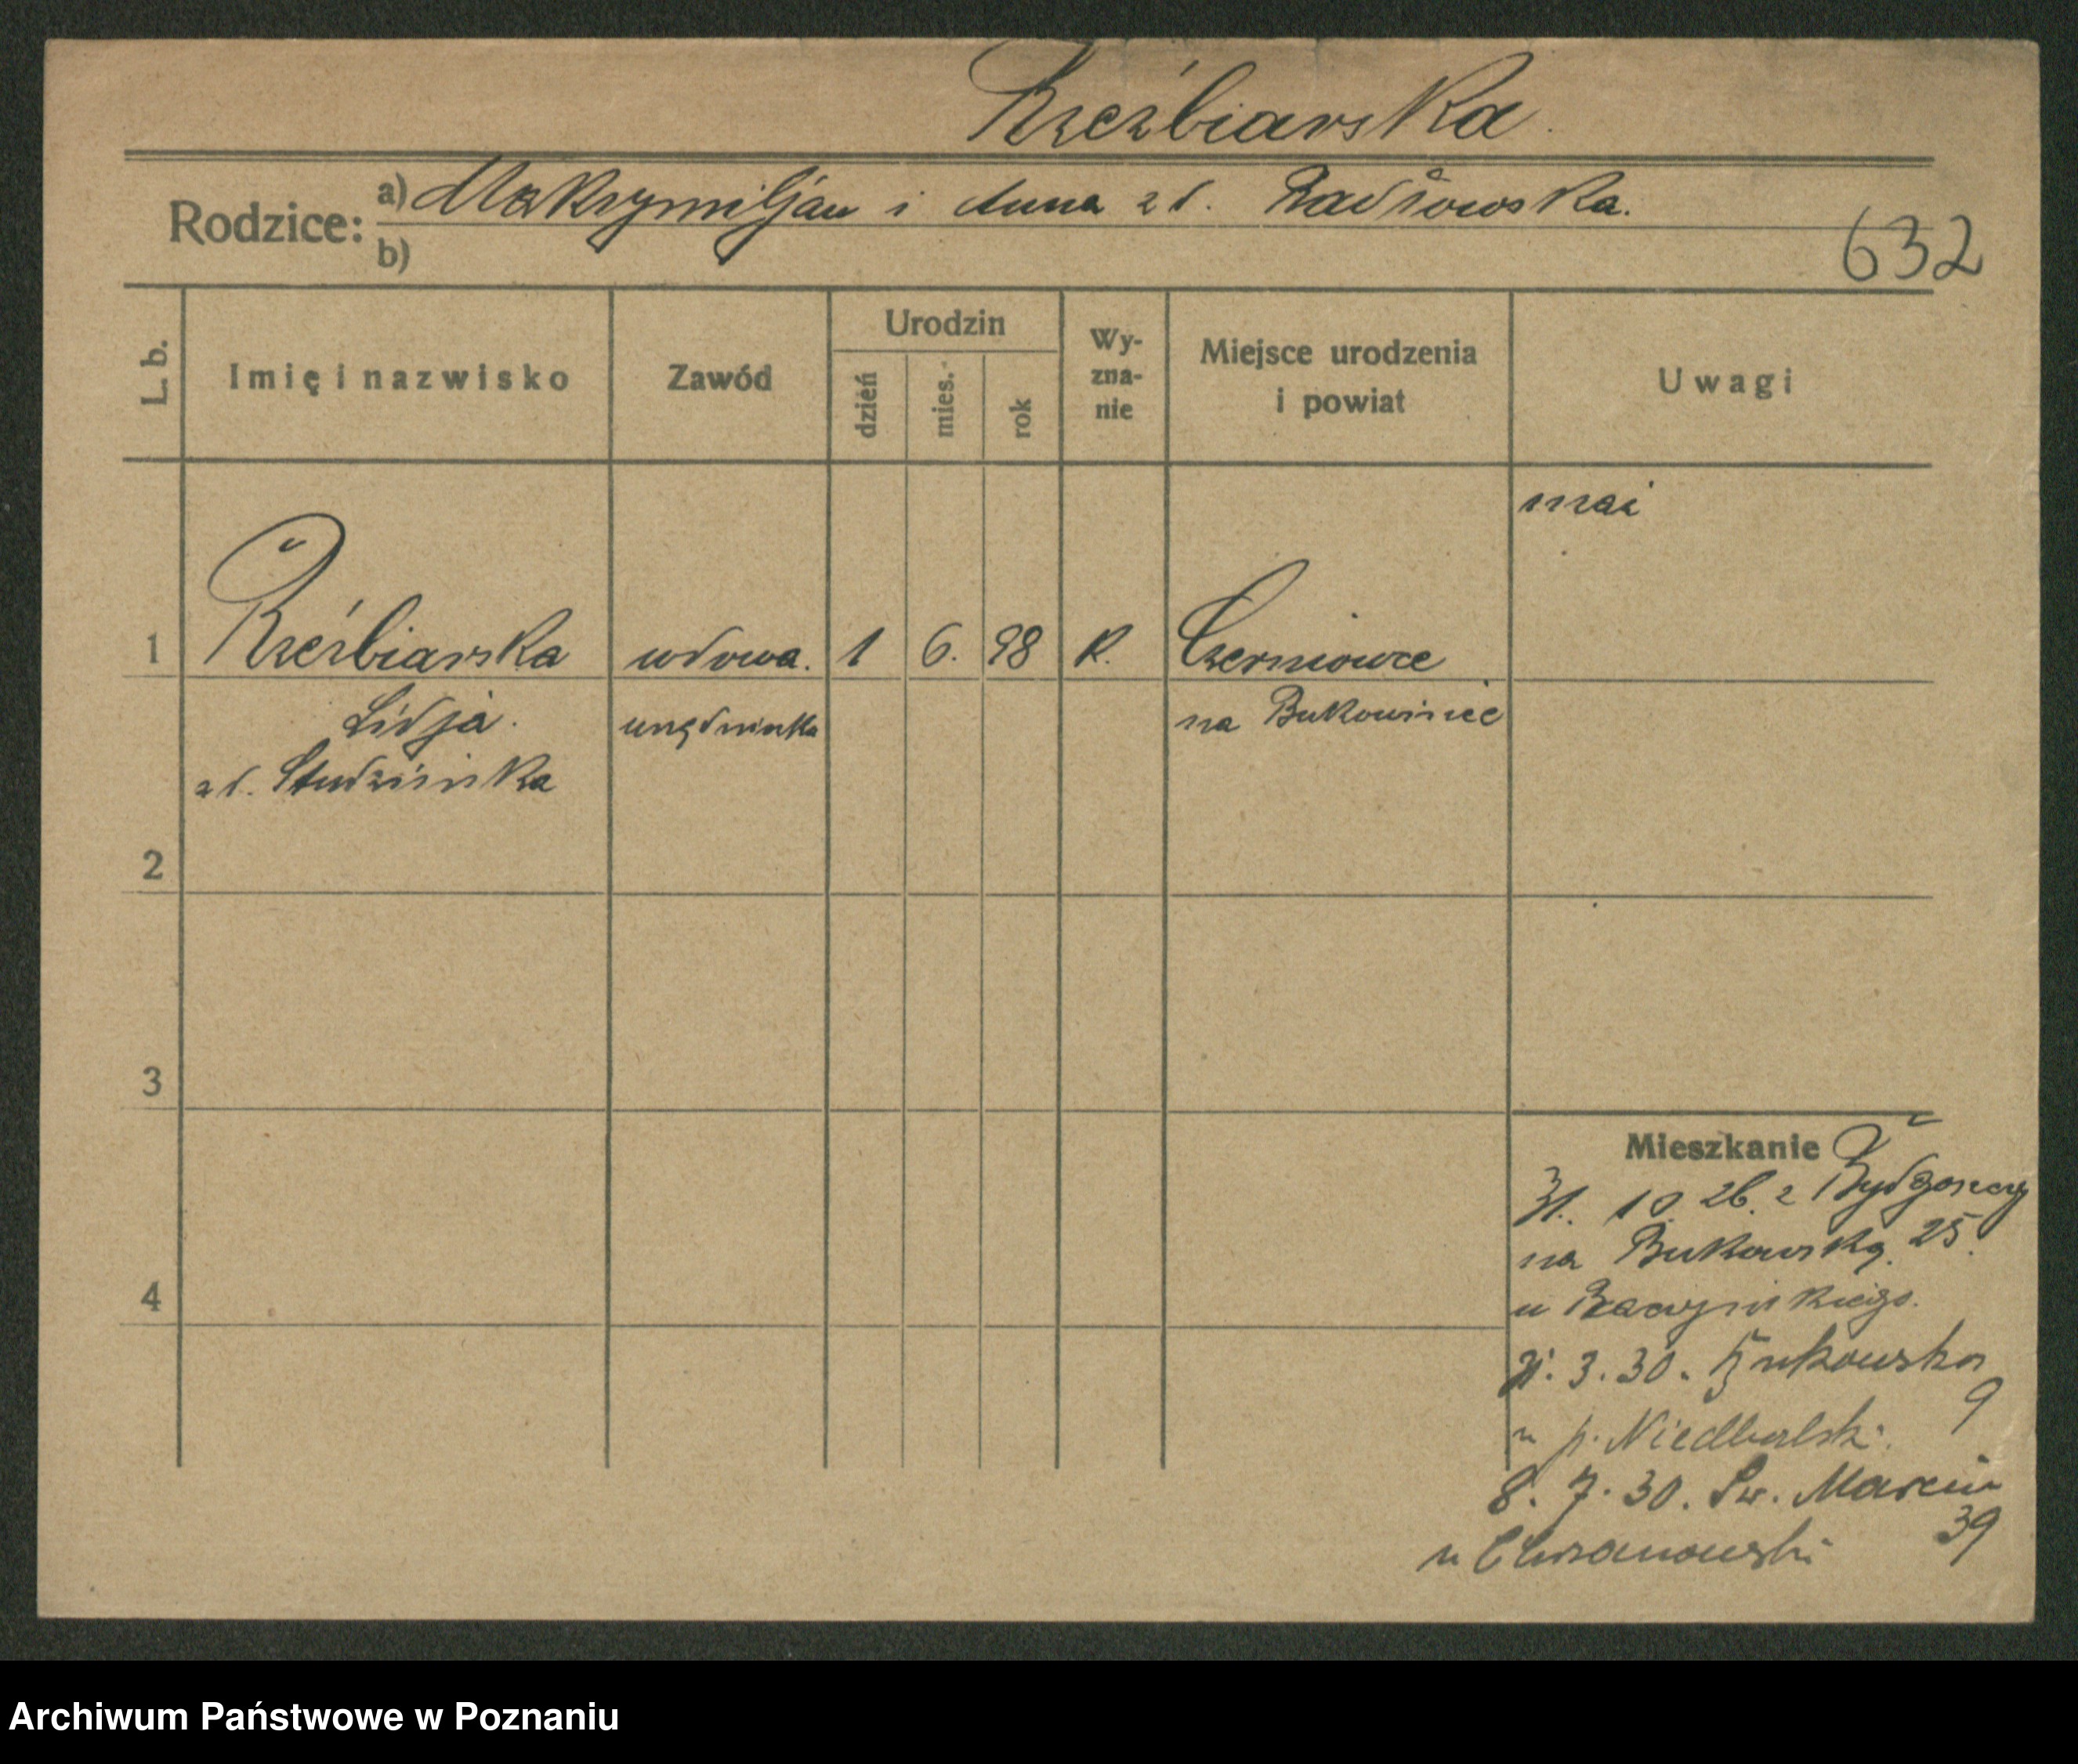 Rzeźbiarska.
Rodzice: a) Maksymiljan i Anna zd. Radłowska.
b)
632
L. b.
Imię i nazwisko
Zawód
Urodzin
dzień
mies.
rok
Wy-
zna-
nie
Miejsce urodzenia
i powiat
Uwagi
1 Rzeźbiarska wdowa. 1 6. 98 K. Czerniowce
Lidja. urzędniczka na Bukowinie
zd. Studzińska
2
3
4
Mieszkanie
31. 10. 26. z Bydgoszczy
na Bukowską. 25.
u
3. 30. Bukowska
9
u p. Niedbalski.
8. 7. 30. Św. Marcin
39
u Chrzanowski
Archiwum Państwowe w Poznaniu